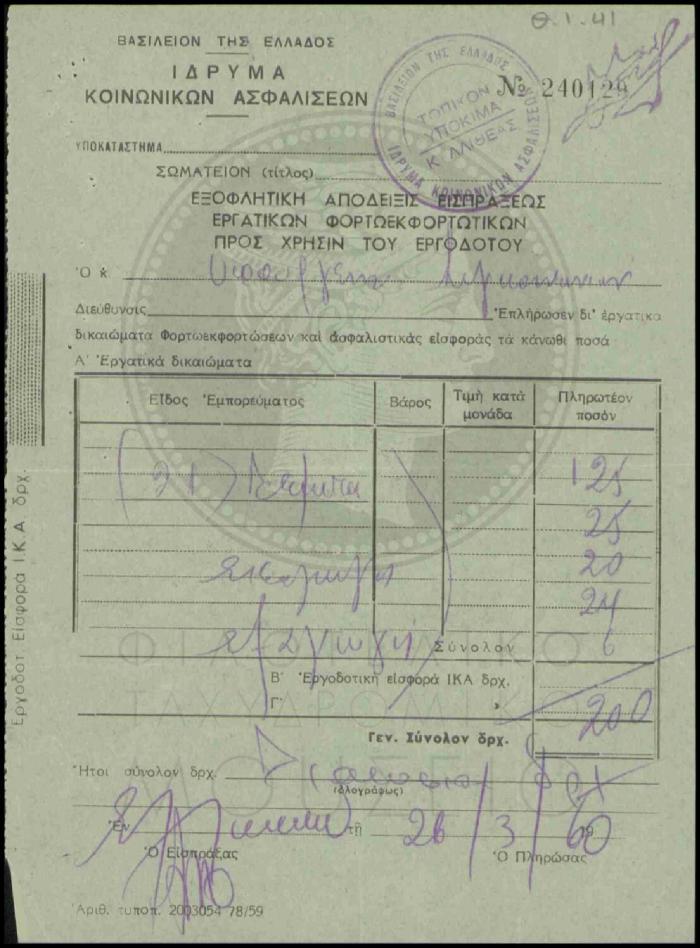 Θ.1.41
ΒΑΣΙΛΕΙΟΝ ΤΗΣ ΕΛΛΑΔΟΣ
ΙΔΡΥΜΑ
ΚΟΙΝΩΝΙΚΩΝ ΑΣΦΑΛΙΣΕΩΝ
ΒΑΣΙΛΕΙΟΝ ΤΗΣ ΕΛΛΑΔΟΣ
ΙΔΡΥΜΑ ΚΟΙΝΩΝΙΚΩΝ ΑΣΦΑΛΙΣΕΩΝ
ΤΟΠΙΚΟΝ
ΥΠΟΚ/ΜΑ
№ 240129
ΥΠΟΚΑΤΑΣΤΗΜΑ
ΣΩΜΑΤΕΙΟΝ (τίτλος)
ΕΞΟΦΛΗΤΙΚΗ ΑΠΟΔΕΙΞΙΣ ΕΙΣΠΡΑΞΕΩΣ
ΕΡΓΑΤΙΚΩΝ ΦΟΡΤΩΕΚΦΟΡΤΩΤΙΚΩΝ
ΠΡΟΣ ΧΡΗΣΙΝ ΤΟΥ ΕΡΓΟΔΟΤΟΥ
Ὁ κ.
Διεύθυνσις Ἐπλήρωσεν δι' ἐργατικα
δικαιώματα Φορτωεκφορτώσεων καὶ ἀσφαλιστικάς εἰσφοράς τὰ κάνωθι ποσά
Α' Ἐργατικά δικαιώματα
Εἶδος Ἐμπορεύματος Βάρος Τιμή κατά μονάδα Πληρωτέον ποσόν
125
25
20
24
Σύνολον 6
Β' Ἐργοδοτική εἰσφορά ΙΚΑ δρχ.
Γ' »
200
Γεν. Σύνολον δρχ.
Ἤτοι σύνολον δρχ.
(ὁλογράφως)
Ἐν τῇ 26/3/1960
Ὁ Εἰσπράξας Ὁ Πληρώσας
Ἀριθ. τυποπ. 2003054 78/59
Ἐργοδοτ Εἰσφορά Ι.Κ.Α δρχ.
ΦΙΛΟΤΕΛΙΚΟ
ΤΑΧΥΔΡΟΜΙΚΟ
ΜΟΥΣΕΙΟ